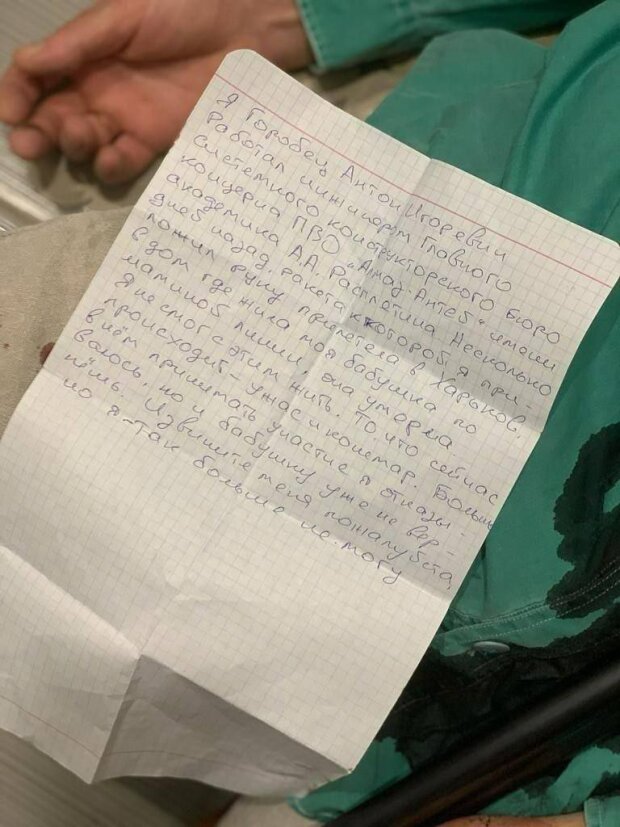 Я Горобец Антон Игоревич
Работал инжинером Главного
системного конструкторского бюро
концерна ПВО "Алмаз-Антей" имени
академика А.А. Расплетина. Несколько
дней назад, ракета к которой я при-
ложил руку прилетела в Харьков,
в дом где жила моя бабушка по
маминой линии, она умерла.
Я не смог с этим жить. То что сейчас
происходит - ужас и кошмар. Больше
в нём принимать участие я отказы-
ваюсь, но и бабушку уже не вер-
нёшь. Извините меня пожалуйста,
но я - так больше не могу